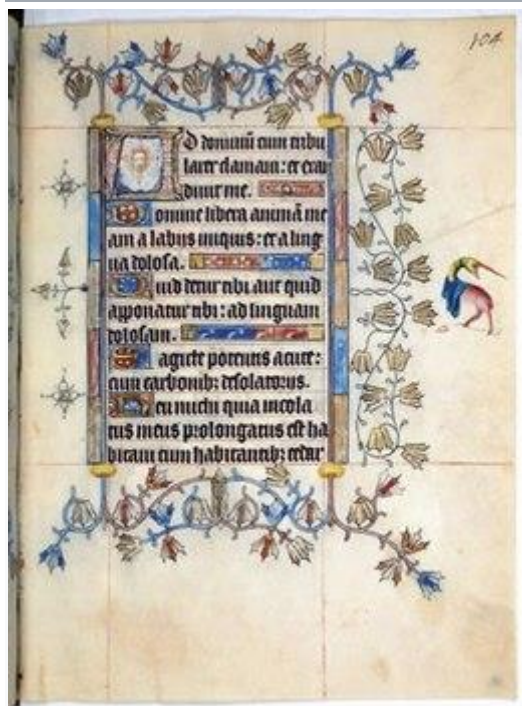 104
AD dominū cum tribu
larer clamaui: et exau
diuit me.
Domine libera animā me
am a labijs iniquis: et a ling
ua dolosa.
Quid detur tibi aut quid
apponatur tibi: ad linguam
dolosam.
Sagitte potentis acute:
cum carbonibꝫ desolatorijs.
Heu michi quia incola
tus meus prolongatus est ha
bitaui cum habitantibꝫ cedar